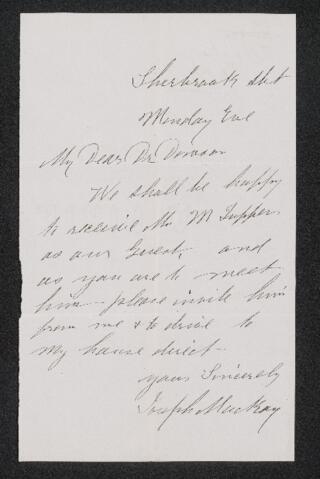 Sherbrook St
Monday Eve
My Dear Dr Dawson
We shall be happy
to receive Mr M Tupper
as our Guest, and
as you are to meet
him - please invite him
from me & to drive to
my house direct -
yours Sincerely
Joseph MacKay